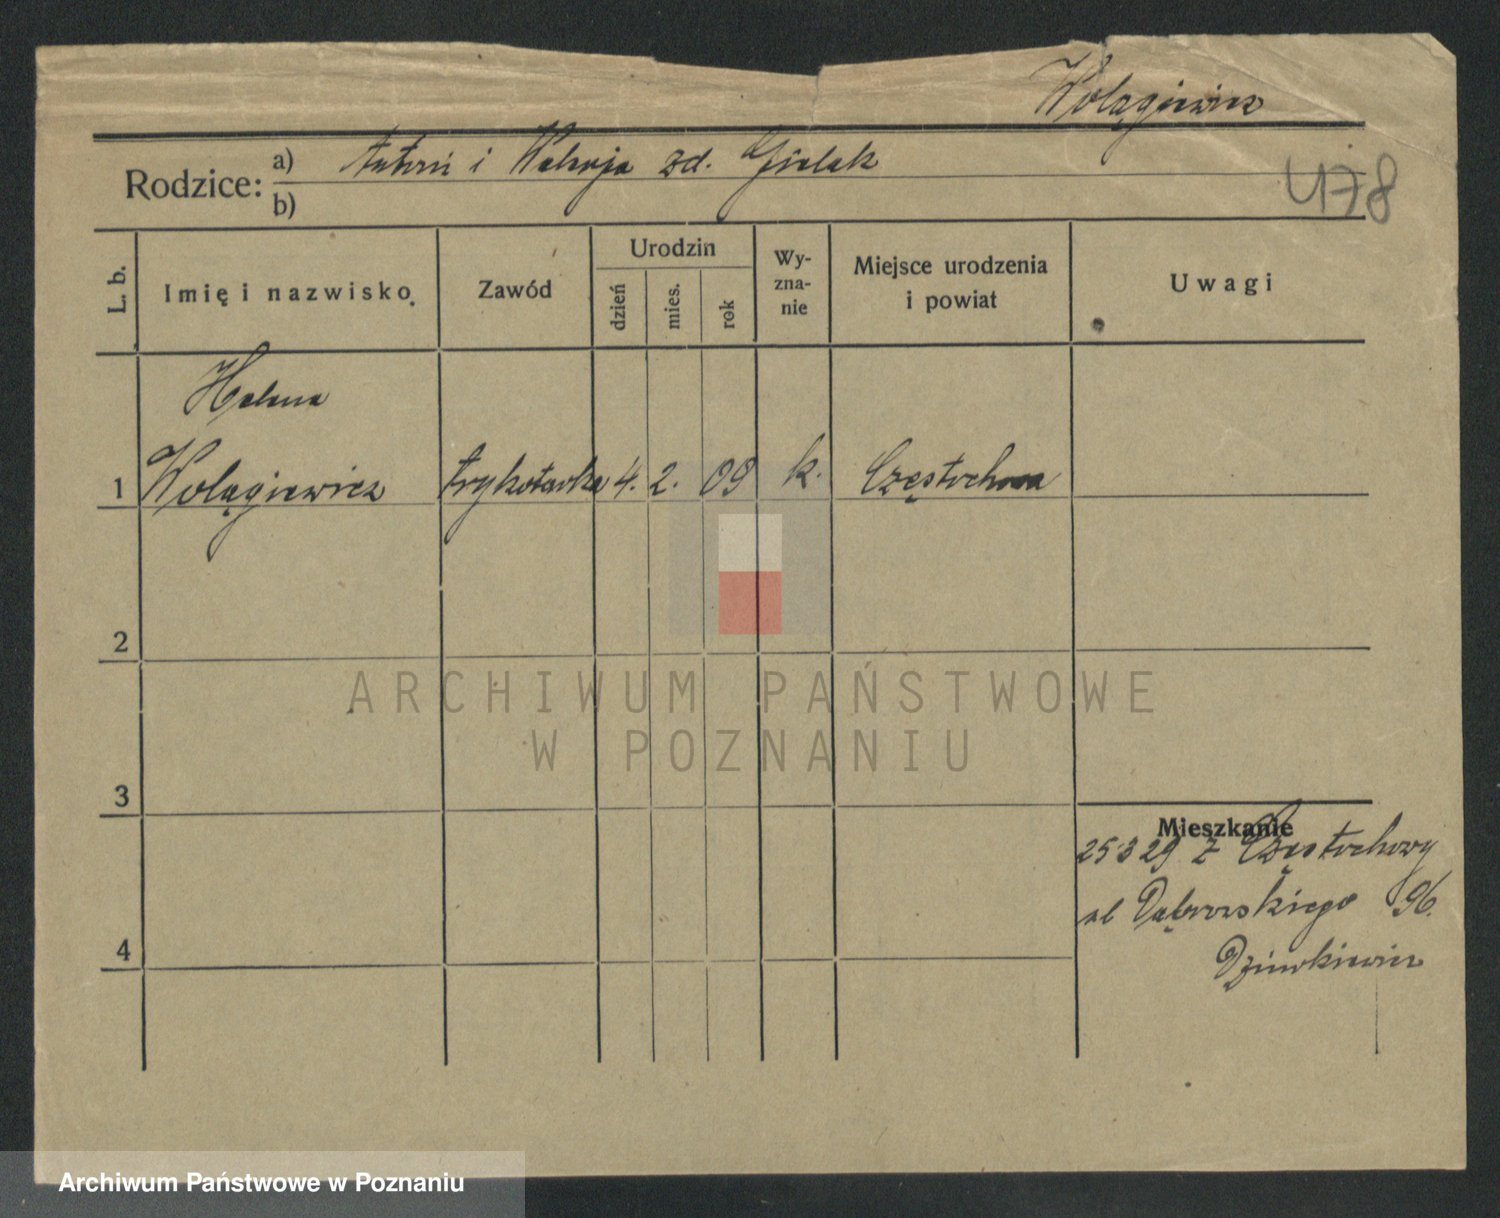 Wolągiewicz
Rodzice: a) Antoni i Walerja zd. Gielak
b)
478
L. b.
Imię i nazwisko
Zawód
Urodzin
dzień
mies.
rok
Wy-
zna-
nie
Miejsce urodzenia
i powiat
Uwagi
Helena
1 Wolągiewicz trykotarka 4. 2. 09 k. Częstochowa
2
ARCHIWUM PAŃSTWOWE
W POZNANIU
3
Mieszkanie
25 3 29 z Częstochowy
ul Dąbrowskiego 96.
4
Archiwum Państwowe w Poznaniu